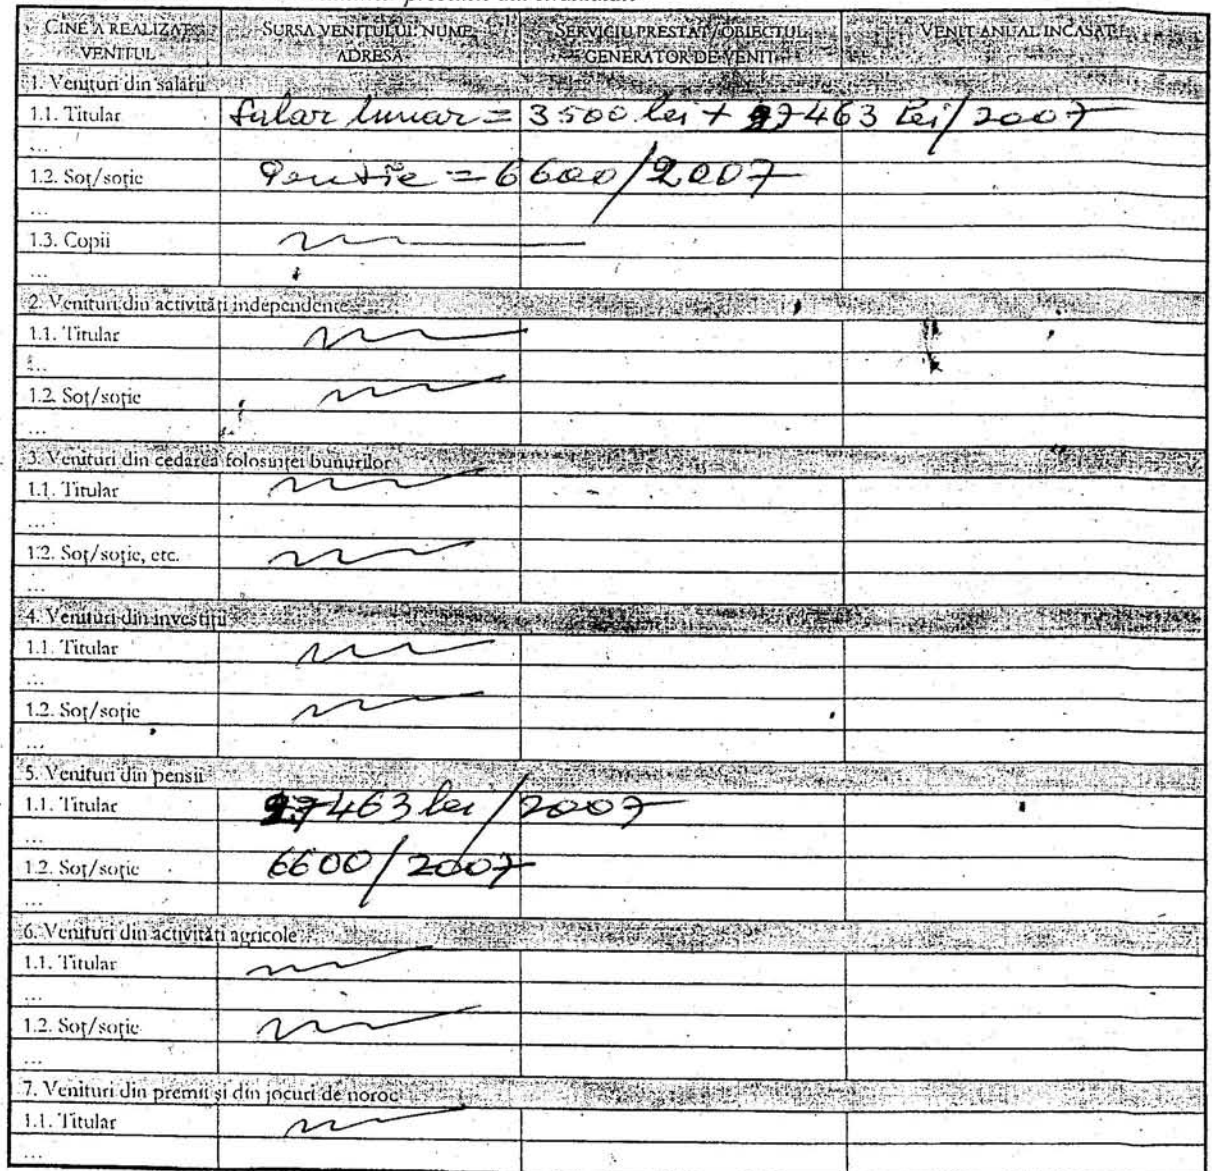 CINE A REALIZAT VENITUL
SURSA VENITULUI: NUME, ADRESA
SERVICIUL PRESTAT/OBIECTUL GENERATOR DE VENIT
VENIT ANUAL ÎNCASAT
1. Venituri din salarii
1.1. Titular Salar lunar = 3500 lei + 27463 lei/2007
...
1.2. Soț/soție Pensie = 6600/2007
...
1.3. Copii
...
2. Venituri din activități independente
1.1. Titular
...
1.2. Soț/soție
...
3. Venituri din cedarea folosinței bunurilor
1.1. Titular
...
1.2. Soț/soție, etc.
...
4. Venituri din investiții
1.1. Titular
...
1.2. Soț/soție
...
5. Venituri din pensii
1.1. Titular 27463 lei/2007
...
1.2. Soț/soție 6600/2007
...
6. Venituri din activități agricole
1.1. Titular
...
1.2. Soț/soție
...
7. Venituri din premii și din jocuri de noroc
1.1. Titular
...